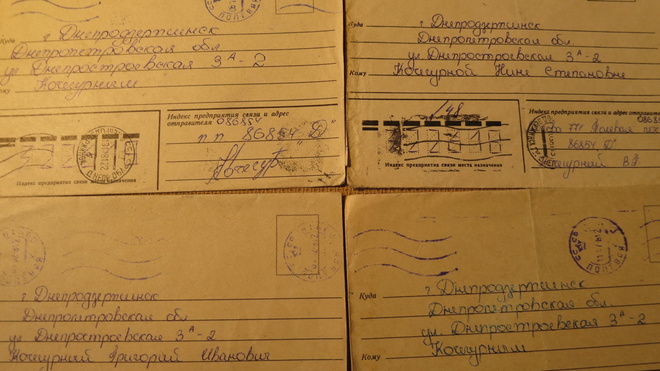 Куда г Днепродзержинск
Днепропетровская обл
ул Днепростроевская 3А-2
Кому
Индекс предприятия связи и адрес
отправителя 086854
п п 86854 "Д"
Индекс предприятия связи места назначения
Куда г. Днепродзержинск
Днепропетровская обл
ул Днепростроевская 3А-2
Кому Кошурной Нине Степановне
148
Индекс предприятия связи и адрес
отправителя 086854
Полевая
86854
Индекс предприятия связи места назначения
г Днепродзержинск
Днепропетровская обл
ул Днепростроевская 3А-2
Кошурний Григорий Иванович
ПОЛЕВАЯ
Куда г Днепродзержинск
Днепропетровская обл.
ул. Днепростроевская 3А-2
Кому Кошурним